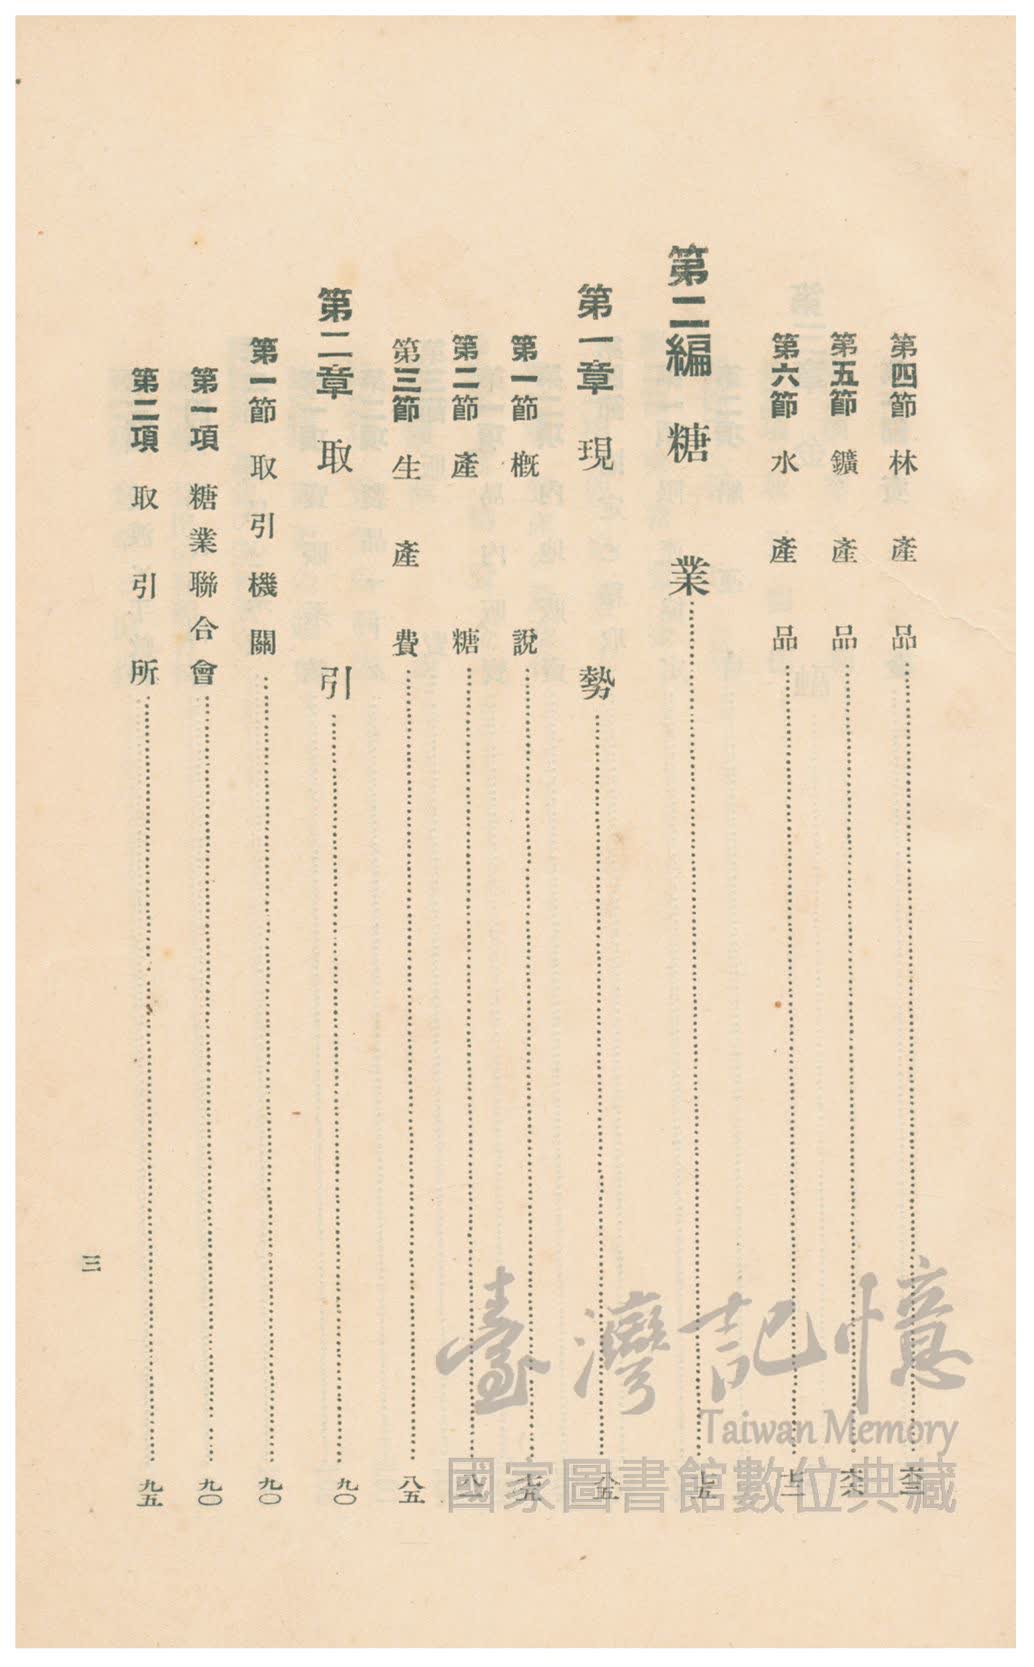 第四節 林產品……六三
第五節 鑛產品……
第六節 水產品……
第二編 糖業……七五
第一章 現勢……
第一節 概說……七五
第二節 產糖……
第三節 生產費……八五
第二章 取引……九〇
第一節 取引機關……九〇
第一項 糖業聯合會……九〇
第二項 取引所……九五
三
臺灣記憶
Taiwan Memory
國家圖書館數位典藏